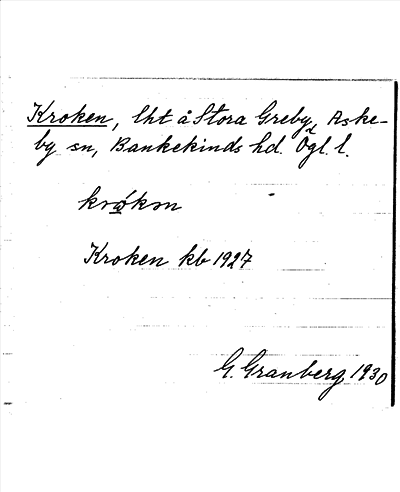 Kroken, lht å Stora Greby, Aske-
by sn, Bankekinds hd. Ögl. l.
Kroken kb 1927
G. Granberg 1930